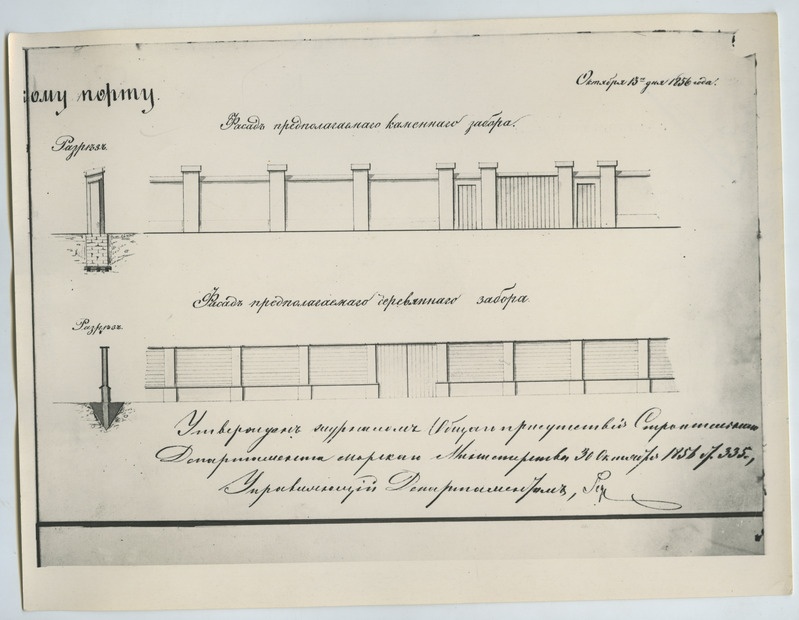 ому порту.
Октября 13го дня 1856 года.
Фасадъ предполагаемаго каменнаго забора.
Разрѣзъ.
Фасадъ предполагаемаго деревяннаго забора.
Разрѣзъ.
Утвержденъ журналомъ Общаго присутствія Строительнаго
Департамента Морскаго Министерства 30 Октября 1856 г. № 335.,
Управляющій Департаментомъ,